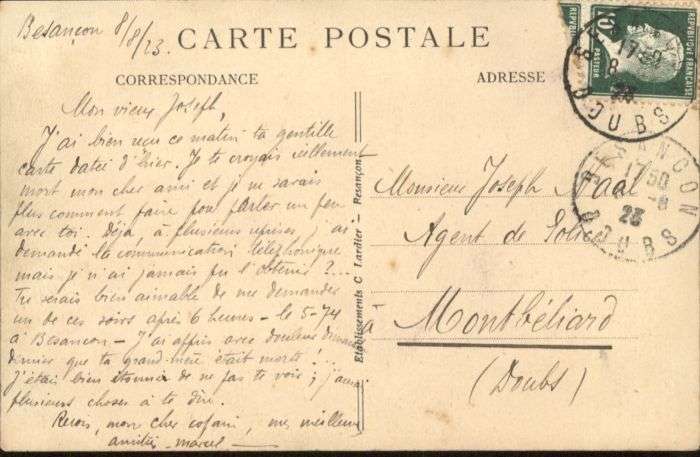 Besançon 8/8/23.
CARTE POSTALE
CORRESPONDANCE
Mon vieux Joseph,
J'ai bien reçu ce matin ta gentille
carte datée d'hier. Je te croyais réellement
mort mon cher ami et je ne savais
plus comment faire pour parler un peu
avec toi. Déjà à plusieurs reprises j'ai
demandé la communication téléphonique
mais je n'ai jamais pu l'obtenir ?...
Tu serais bien aimable de me demander
un de ces soirs après 6 heures - le 5-74
à Besançon - J'ai appris avec douleur
dernier que ta grand-mère était morte !..
J'étais bien étonné de ne pas te voir ; j'avais
plusieurs choses à te dire.
Reçois, mon cher copain, mes meilleures
amitiés - Marcel -
Etablissements C. Lardier - Besançon
ADRESSE
Monsieur Joseph
Agent de Police
à Montbéliard
(Doubs)
REPUBLIQUE FRANÇAISE
PASTEUR
10
REPUBLI
17 30
8
23
DOUBS
BESANCON
17 30
-8
23
DOUBS